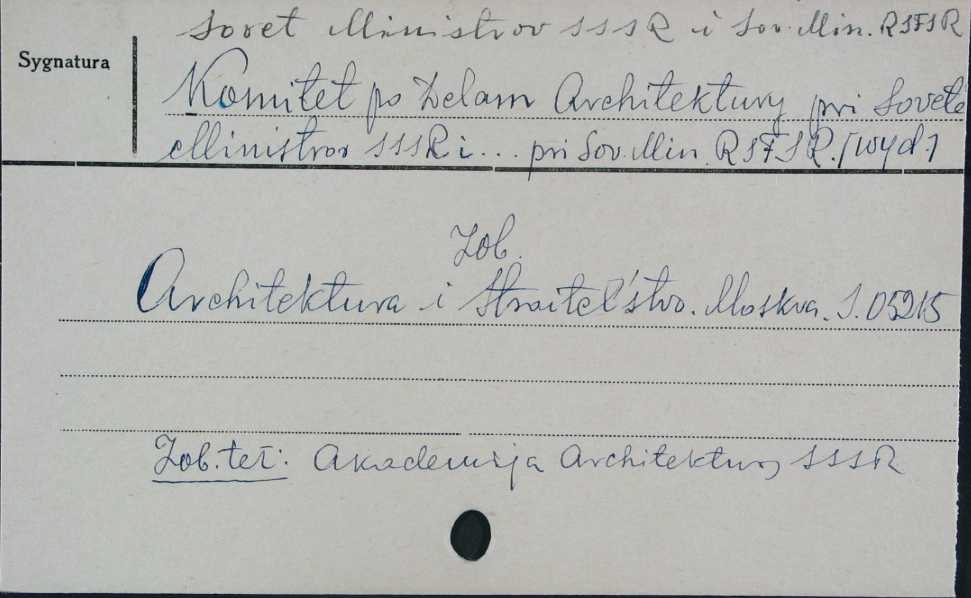 Sovet Ministrov SSSR i Sov. Min. RSFSR
Sygnatura
Komitet po Delam Architektury pri Sovete
Ministrov SSSR i... pri Sov. Min. RSFSR. [wyd.]
Zob.
Architektura i Stroitel'stvo. Moskva. S. 05215
Zob. też: Akademija Architektury SSSR